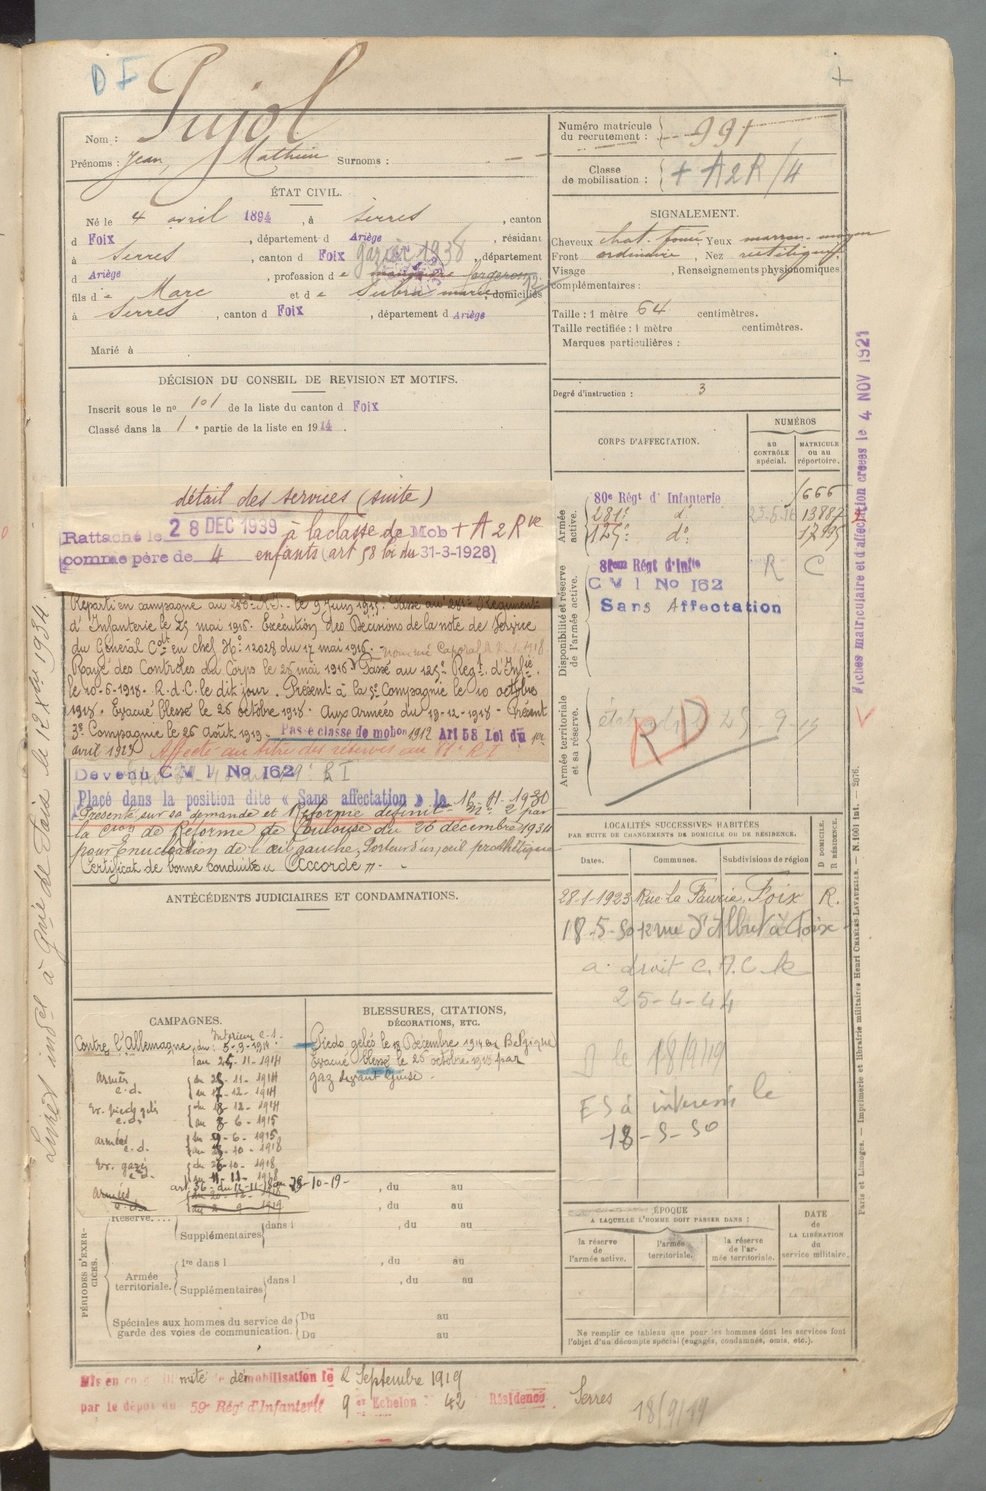 DF
Nom : Pujol
Prénoms : Jean, Mathieu Surnoms : —
Numéro matricule du recrutement : 991
Classe de mobilisation : + A2R/4
ÉTAT CIVIL.
Né le 4 avril 1894, à Serres, canton
d Foix, département d Ariège, résidant
à Serres, canton d Foix, département
d Ariège, profession de forgeron
fils de Marc et de Subra Marie, domiciliés
à Serres, canton d Foix, département d Ariège
Marié à
SIGNALEMENT.
Cheveux chat. foncé Yeux marron moyen
Front ordinaire, Nez rectiligne
Visage , Renseignements physionomiques
complémentaires :
Taille : 1 mètre 64 centimètres.
Taille rectifiée : 1 mètre centimètres.
Marques particulières :
Degré d'instruction : 3
DÉCISION DU CONSEIL DE REVISION ET MOTIFS.
Inscrit sous le no 101 de la liste du canton d Foix
Classé dans la 1e partie de la liste en 1914.
détail des services (suite)
Rattaché le 28 DEC 1939 à la classe de Mob + A2R
comme père de 4 enfants (art 58 loi du 31-3-1928)
Réparti en campagne au 280e R.I. le 9 Juin 1915. Passé au 281e Régiment
d'Infanterie le 25 mai 1916. Exécution des Décisions de la note de Service
du Général Ct en chef No 12028 du 17 mai 1916. nommé Caporal
Rayé des Contrôles du Corps le 25 mai 1916. Passé au 125e Régt. d'Infie
le 10-6-1918. R.d.C. le dit jour. Présent à la 5e Compagnie le 10 octobre
1918. Evacué blessé le 26 octobre 1918. Aux Armées du 19-12-1918. Présent
3e Compagnie le 26 Août 1919. Passé classe de mobon 1912 Art 58 Loi du 1er
avril 1923 Affecté au titre des réserves au 81e R.I.
Devenu C M I No 162
Placé dans la position dite « Sans affectation » le 16-11-1930
Présenté sur sa demande et Réformé définitif no 2 par
la Con de Réforme de Toulouse du 26 décembre 1934
pour Enucléation de l'œil gauche. Porteur d'un œil prothétique
Certificat de bonne conduite « Accordé »
CORPS D'AFFECTATION.
NUMÉROS
au CONTRÔLE spécial.
MATRICULE ou au répertoire.
Armée active.
80e Régt d'Infanterie 1666
281e do 13887
125e do
Disponibilité et réserve de l'armée active.
81em Régt d'Infie R C
C M I No 162
Sans Affectation
Armée territoriale et sa réserve.
RD
Fiches matriculaire et d'affectation créées le 4 NOV 1921
LOCALITÉS SUCCESSIVES HABITÉES
PAR SUITE DE CHANGEMENTS DE DOMICILE OU DE RÉSIDENCE.
Dates. Communes. Subdivisions de région
D DOMICILE. R RÉSIDENCE.
28-1-1923 Rue La Faurie, Foix R.
18-5-50 12 rue d'Albret à Foix
a droit C.A.C. le
25-4-44
D le 18/9/19
ES à intéressé le
18-5-50
ANTÉCÉDENTS JUDICIAIRES ET CONDAMNATIONS.
CAMPAGNES.
Contre l'Allemagne, Intérieur C.S.
du 5-9-1914
au 25-11-1914
Armées c.d. du 26-11-1914
au 17-12-1914
Ev. pieds gelés c.d. du 18-12-1914
au 8-6-1915
Armées c.d. du 9-6-1915
au 25-10-1918
Ev. gazé c.d. du 26-10-1918
28-10-19
BLESSURES, CITATIONS,
DÉCORATIONS, ETC.
Pieds gelés le 17 Décembre 1914 en Belgique
Evacué blessé le 26 octobre 1918 par
gaz devant Guise.
PÉRIODES D'EXERCICES.
Réserve.... , du au
, du au
Supplémentaires dans l , du au
Armée territoriale.
1re dans l , du au
Supplémentaires dans l , du au
Spéciales aux hommes du service de garde des voies de communication.
Du au
Du au
ÉPOQUE
A LAQUELLE L'HOMME DOIT PASSER DANS :
la réserve de l'armée active.
l'armée territoriale.
la réserve de l'armée territoriale.
DATE de LA LIBÉRATION du service militaire.
Ne remplir ce tableau que pour les hommes dont les services font
l'objet d'un décompte spécial (engagés, condamnés, omis, etc.).
Paris et Limoges. — Imprimerie et librairie militaires Henri CHARLES-LAVAUZELLE.
démobilisation le 2 Septembre 1919
par le dépôt du 59e Régt d'Infanterie 9er Echelon 42 Résidence Serres
18/9/19